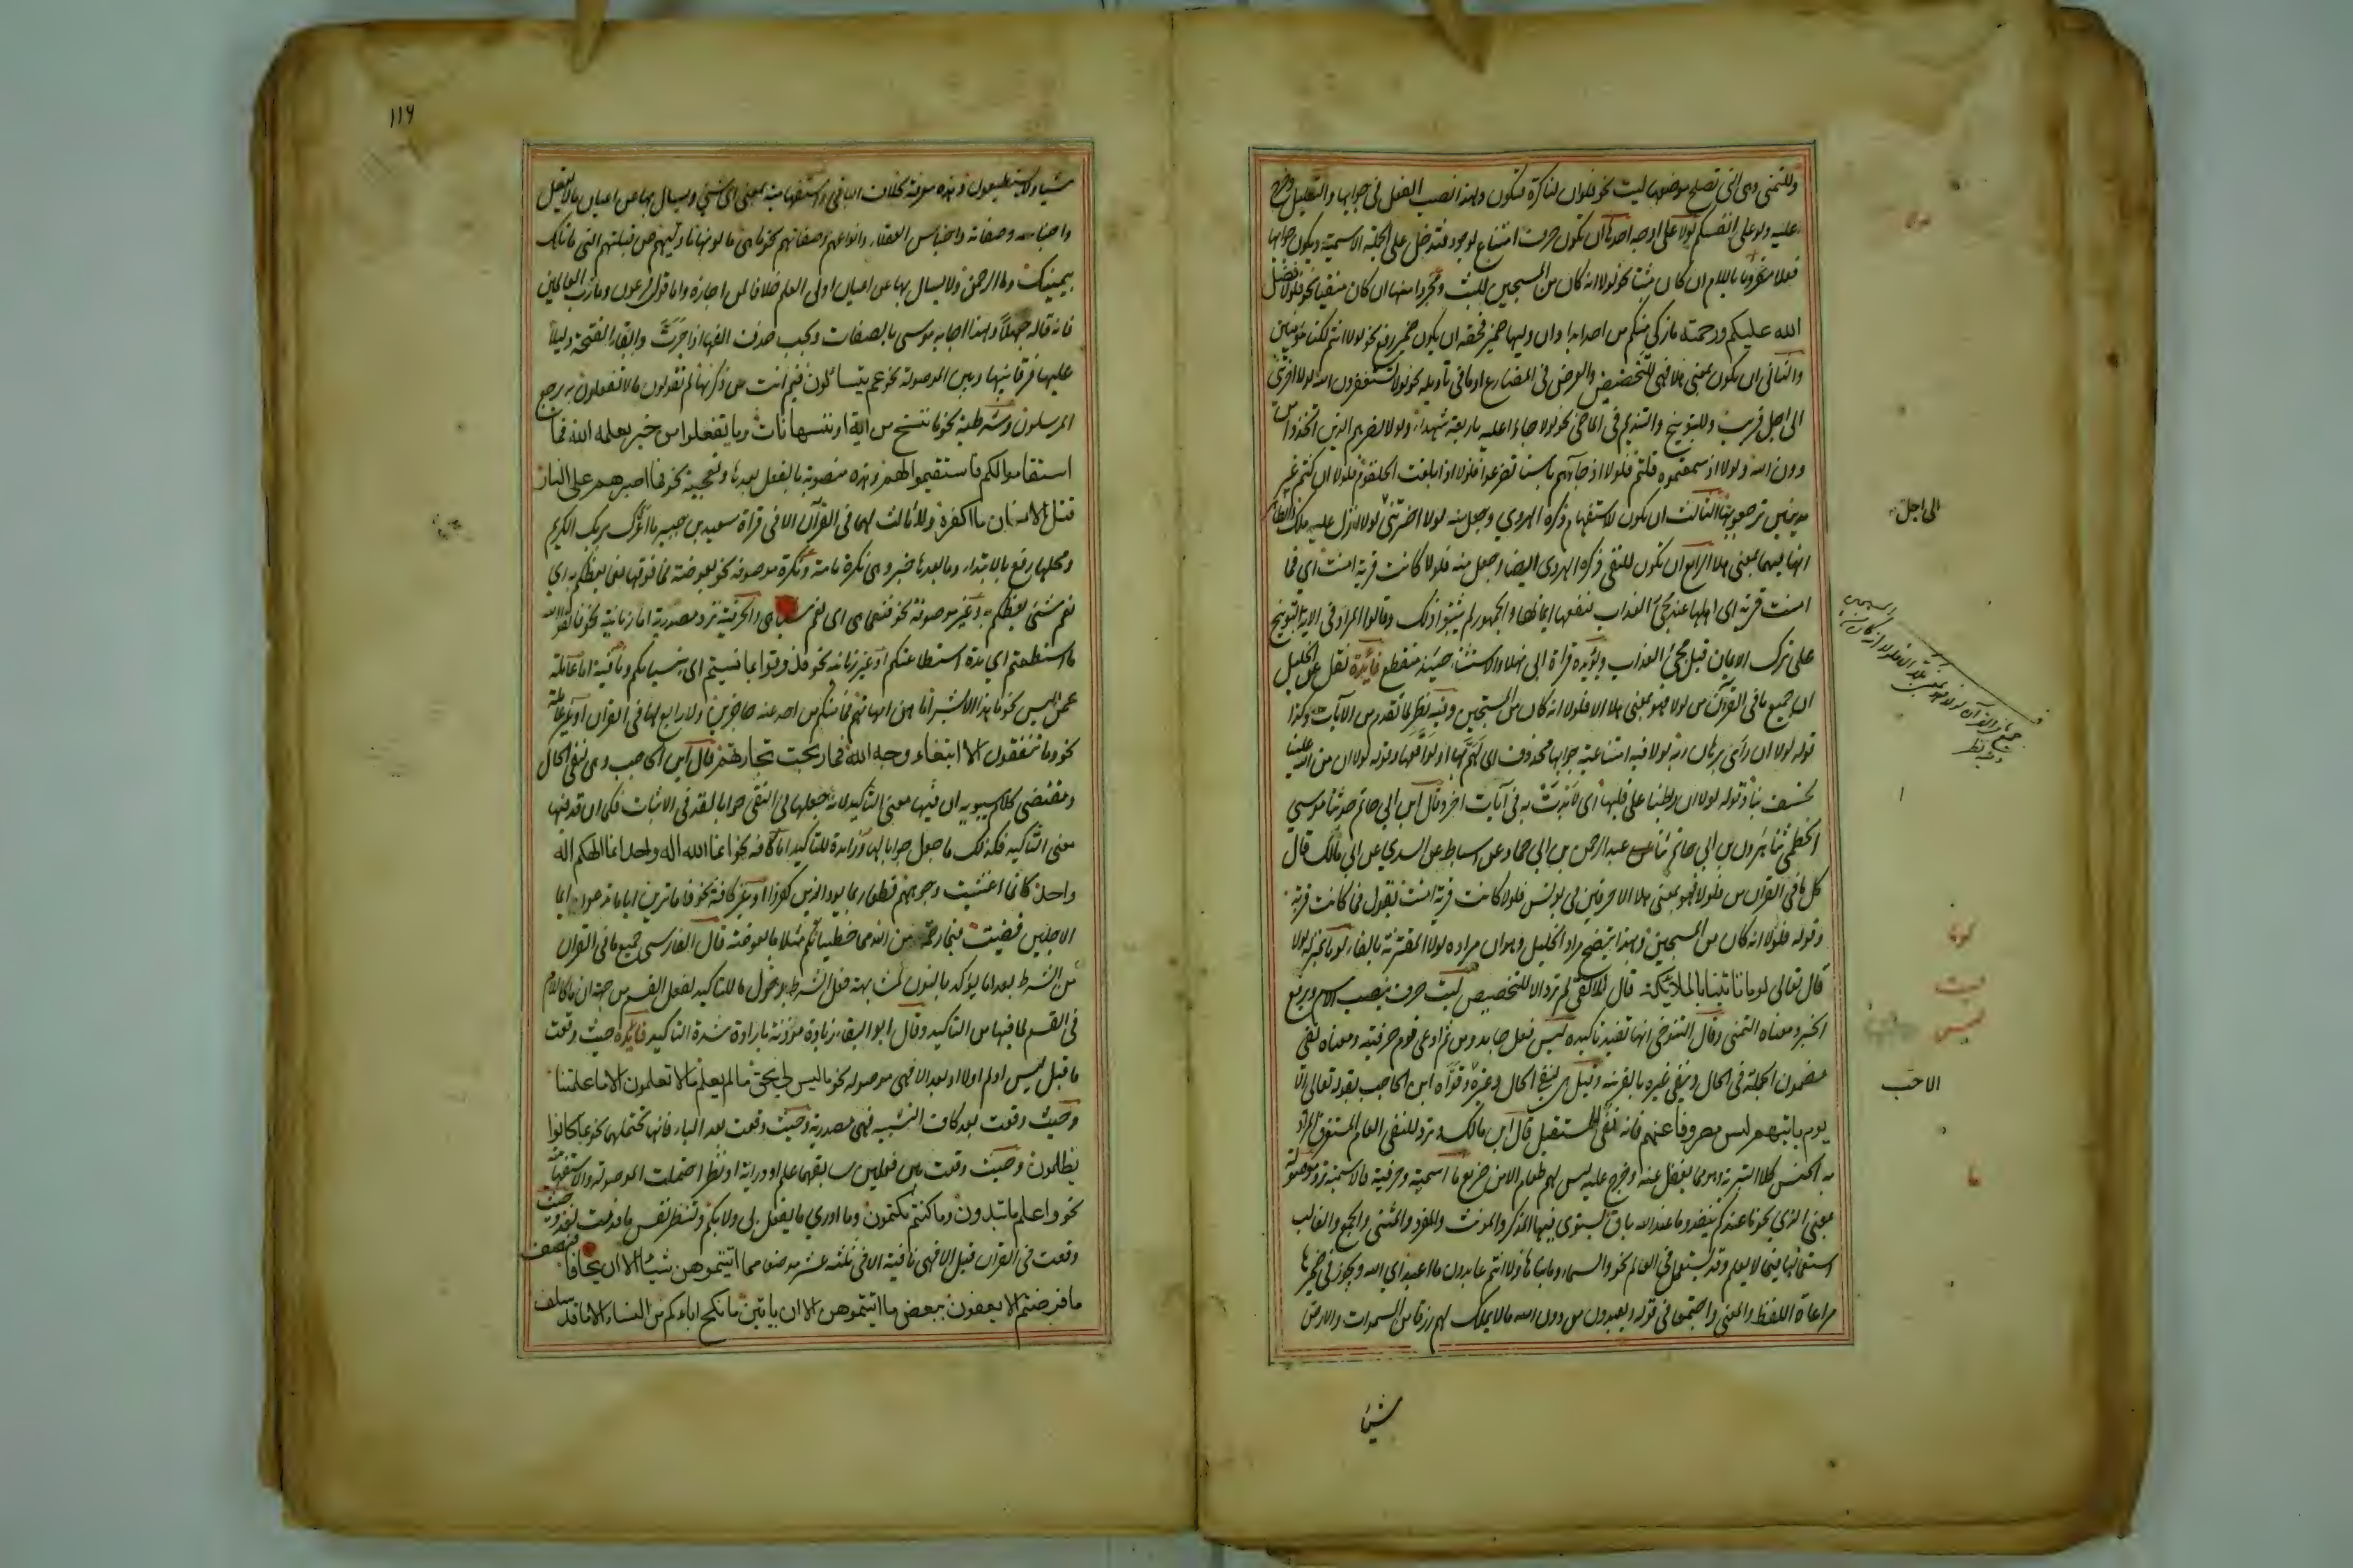 وللتمنى وهى التى تصلح موضعها ليت نحو فلو ان لنا كرة فنكون ولهذا نصب الفعل فى جوابها وللتقليل وخرج
عليه ولو على انفسكم لولا على اوجه احدها ان تكون حرف امتناع لوجود فتدخل على الجملة الاسمية ويكون جوابها
فعلا مقرونا باللام ان كان مثبتا نحو لولا انه كان من المسبحين للبث ومجردا منها ان كان منفيا نحو فلولا فضل
الله عليكم ورحمته ما زكى منكم من احد ابدا وان وليها ضمير فحقه ان يكون ضمير رفع نحو لولا انتم لكنا مؤمنين
والثانى ان تكون بمعنى هلا فهى للتحضيض والعرض فى المضارع او ما فى تأويله نحو لولا تستغفرون الله لولا اخرتنى
الى اجل قريب وللتوبيخ والتنديم فى الماضى نحو لولا جاؤا عليه باربعة شهداء ولولا نصرهم الذين اتخذوا من
دون الله ولولا اذ سمعتموه قلتم فلولا اذ جاءهم باسنا تضرعوا فلولا اذا بلغت الحلقوم فلولا ان كنتم غير
مدينين ترجعونها الثالث ان تكون للاستفهام ذكره الهروي وجعل منه لولا اخرتنى لولا انزل عليه ملك والظاهر
انها فيهما بمعنى هلا الرابع ان تكون للنفى ذكره الهروى ايضا وجعل منه فلولا كانت قرية امنت اى فما
امنت قرية اى اهلها عند مجئ العذاب فنفعها ايمانها والجمهور لم يثبتوا ذلك وقالوا المراد فى الاية التوبيخ
على ترك الايمان قبل مجئ العذاب ويؤيده قراة ابى فهلا والاستثناء حينئذ منقطع فائدة نقل عن الخليل
ان جميع ما فى القرآن من لولا فهو بمعنى هلا الا فلولا انه كان من المسبحين وفيه نظر لما تقدم من الآيات وكذا
قوله لولا ان راى برهان ربه لولا فيه امتناعية جوابها محذوف اى لهم بها او لواقعها وقوله لولا ان من الله علينا
لخسف بنا وقوله لولا ان ربطنا على قلبها اى لابدت به فى آيات اخر وقال ابن ابى حاتم حدثنا موسى
الخطمى ثنا هرون بن ابى حاتم ثنا عبد الرحمن بن ابى حماد عن اسباط عن السدي عن ابى مالك قال
كل ما فى القرآن من فلولا فهو بمعنى هلا الا حرفين فى يونس فلولا كانت قرية امنت يقول فما كانت قرية
وقوله فلولا انه كان من المسبحين وبهذا يتضح مراد الخليل وهو ان مراده لولا المقترنة بالفاء لوما بمنزلة لولا
قال تعالى لوما تاتينا بالملائكة قال المالقى لم ترد الا للتحضيض ليت حرف ينصب الاسم ويرفع
الخبر ومعناه التمنى وقال التنوخى انها تفيد تاكيده ليس فعل جامد ومن ثم ادعى قوم حرفيته ومعناه نفى
مضمون الجملة فى الحال ونفى غيره بالقرينة وقيل هى لنفى الحال وغيره وقواه ابن الحاجب بقوله تعالى الا
يوم ياتيهم ليس مصروفا عنهم فانه نفى للمستقبل قال ابن مالك وترد للنفى العام المستغرق المراد
به الجنس كلا التبرئة وهو مما يغفل عنه وخرج عليه ليس لهم طعام الا من ضريع ما اسمية وحرفية فالاسمية ترد موصولة
بمعنى الذي نحو ما عندكم ينفد وما عند الله باق ويستوى فيها المذكر والمونث والمفرد والمثنى والجمع والغالب
استعمالها فيما لا يعلم وقد يستعمل فى العالم نحو والسماء وما بناها ولا انتم عابدون ما اعبد اى الله ويجوز فى ضميرها
مراعاة اللفظ والمعنى واجتمعا فى قوله ويعبدون من دون الله ما لا يملك لهم رزقا من السموات والارض
شيئا
الى اجل
لوما
ليت
ليس
الاحب
ما
١١٦
شيئا ولا يستطيعون وهذه معرفة بخلاف الباقى واستفهامية بمعنى اى شئ ويسال بها عن اعيان ما لا يعقل
واجناسه وصفاته واجناس العقلاء وانواعهم وصفاتهم نحو ما هى ما لونها ما وليهم عن قبلتهم التى ما تلك
بيمينك وما الرحمن ولا يسال بها عن اعيان اولى العلم خلافا لمن اجازه واما قول فرعون وما رب العالمين
فانه قاله جهلا ولهذا اجابه موسى بالصفات ويجب حذف الفها اذا جرت وابقاء الفتحة دليلا
عليها فرقا بينها وبين الموصولة نحو عم يتسائلون فيم انت من ذكريها لم تقولون ما لا تفعلون بم يرجع
المرسلون وشرطية نحو ما ننسخ من آية او ننسها نات وما تفعلوا من خير يعلمه الله فما
استقاموا لكم فاستقيموا لهم وهذه منصوبة بالفعل بعدها وتعجبية نحو فما اصبرهم على النار
قتل الانسان ما اكفره ولا ثالث لهما فى القرآن الا فى قراة سعيد بن جبير ما اغرك بربك الكريم
ومحلها رفع بالابتداء وما بعدها خبر وهى نكرة تامة ونكرة موصوفة نحو بعوضة فما فوقها نعما يعظكم به اي
نعم شئ يعظكم به وغير موصوفة نحو فنعما هى اى نعم شيئا هى والحرفية ترد مصدرية اما زمانية نحو فاتقوا الله
ما استطعتم اي مدة استطاعتكم او غير زمانية نحو فذوقوا بما نسيتم اى بنسيانكم ونافية اما عاملة
عمل ليس نحو ما هذا الا بشرا ما هن امهاتهم فما منكم من احد عنه حاجزين ولا رابع لها فى القرآن او غير عاملة
نحو وما تنفقون الا ابتغاء وجه الله فما ربحت تجارتهم قال ابن الحاجب وهى لنفى الحال
ومقتضى كلام سيبويه ان فيها معنى التاكيد لانه جعلها فى النفى جوابا لقد فى الاثبات فكما ان قد فيها
معنى التاكيد فكذلك ما جعل جوابا لها وزائدة للتاكيد اما كافة نحو انما الله اله واحد انما الهكم اله
واحد كانما اغشيت وجوههم قطعا ربما يود الذين كفروا او غير كافة نحو فاما ترين اياما تدعوا ايما
الاجلين قضيت فبما رحمة من الله مما خطيئاتهم مثلا ما بعوضة قال الفارسى جميع ما فى القرآن
من الشرط بعد اما يؤكد بالنون لمشابهته فعل الشرط بدخول ما للتاكيد لفعل القسم من جهة ان ما كاللام
فى القسم لما فيها من التاكيد وقال ابو البقاء زيادة موذنة بارادة شدة التاكيد فائدة حيث وقعت
ما قبل ليس او لم او لا او بعد الا فهى موصولة نحو ما ليس لى بحق ما لم يعلم ما لا تعلمون الا ما علمتنا
وحيث وقعت بعد كاف التشبيه فهى مصدرية وحيث وقعت بعد الباء فانها تحتملهما نحو بما كانوا
يظلمون وحيث وقعت بين فعلين سابقهما علم او دراية او نظر احتملت الموصولة والاستفهامية
نحو واعلم ما تبدون وما كنتم تكتمون وما ادري ما يفعل بى ولا بكم ولتنظر نفس ما قدمت لغد وحيث
وقعت فى القرآن قبل الا فهى نافية الا فى ثلثة عشر موضعا مما آتيتموهن شيئا الا ان يخافا فنصف
ما فرضتم الا يعفون ببعض ما آتيتموهن الا ان ياتين ما نكح اباؤكم من النساء الا ما قد سلف